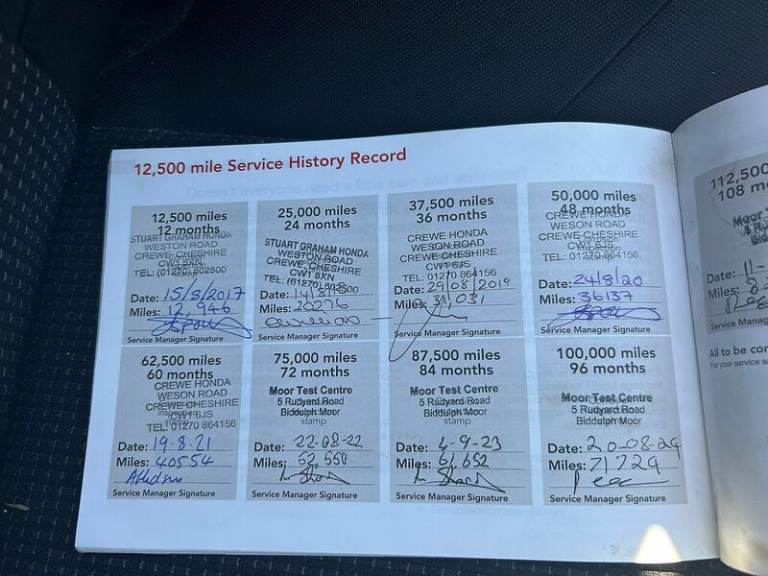 12,500 mile Service History Record
12,500 miles
12 months
STUART GRAHAM HONDA
WESTON ROAD
CREWE CHESHIRE
CW1 6XN
TEL: (01270) 502500
Date: 15/8/2017
Miles: 12,946
Service Manager Signature
25,000 miles
24 months
STUART GRAHAM HONDA
WESTON ROAD
CREWE CHESHIRE
CW1 6XN
TEL: (01270) 502500
Date:
Miles: 20276
Service Manager Signature
37,500 miles
36 months
CREWE HONDA
WESON ROAD
CREWE CHESHIRE
CW1 6JS
TEL: 01270 864156
Date: 29/08/2019
Miles: 31,031
Service Manager Signature
50,000 miles
48 months
CREWE HONDA
WESON ROAD
CREWE CHESHIRE
CW1 6JS
TEL: 01270 864156
Date: 24/8/20
Miles: 36137
Service Manager Signature
62,500 miles
60 months
CREWE HONDA
WESON ROAD
CREWE CHESHIRE
CW1 6JS
TEL: 01270 864156
Date: 19.8.21
Miles: 40554
Service Manager Signature
75,000 miles
72 months
Moor Test Centre
5 Rudyard Road
Biddulph Moor
stamp
Date: 22-08-22
Miles: 52,550
Service Manager Signature
87,500 miles
84 months
Moor Test Centre
5 Rudyard Road
Biddulph Moor
stamp
Date: 4-9-23
Miles: 61,652
Service Manager Signature
100,000 miles
96 months
Moor Test Centre
5 Rudyard Road
Biddulph Moor
Date: 20-08-24
Miles: 71729
Service Manager Signature
112,500
108 m
Moor
5 Rudy
Bidd
Date: 11-
Miles: 8
Service Manag
All to be con
For your service s